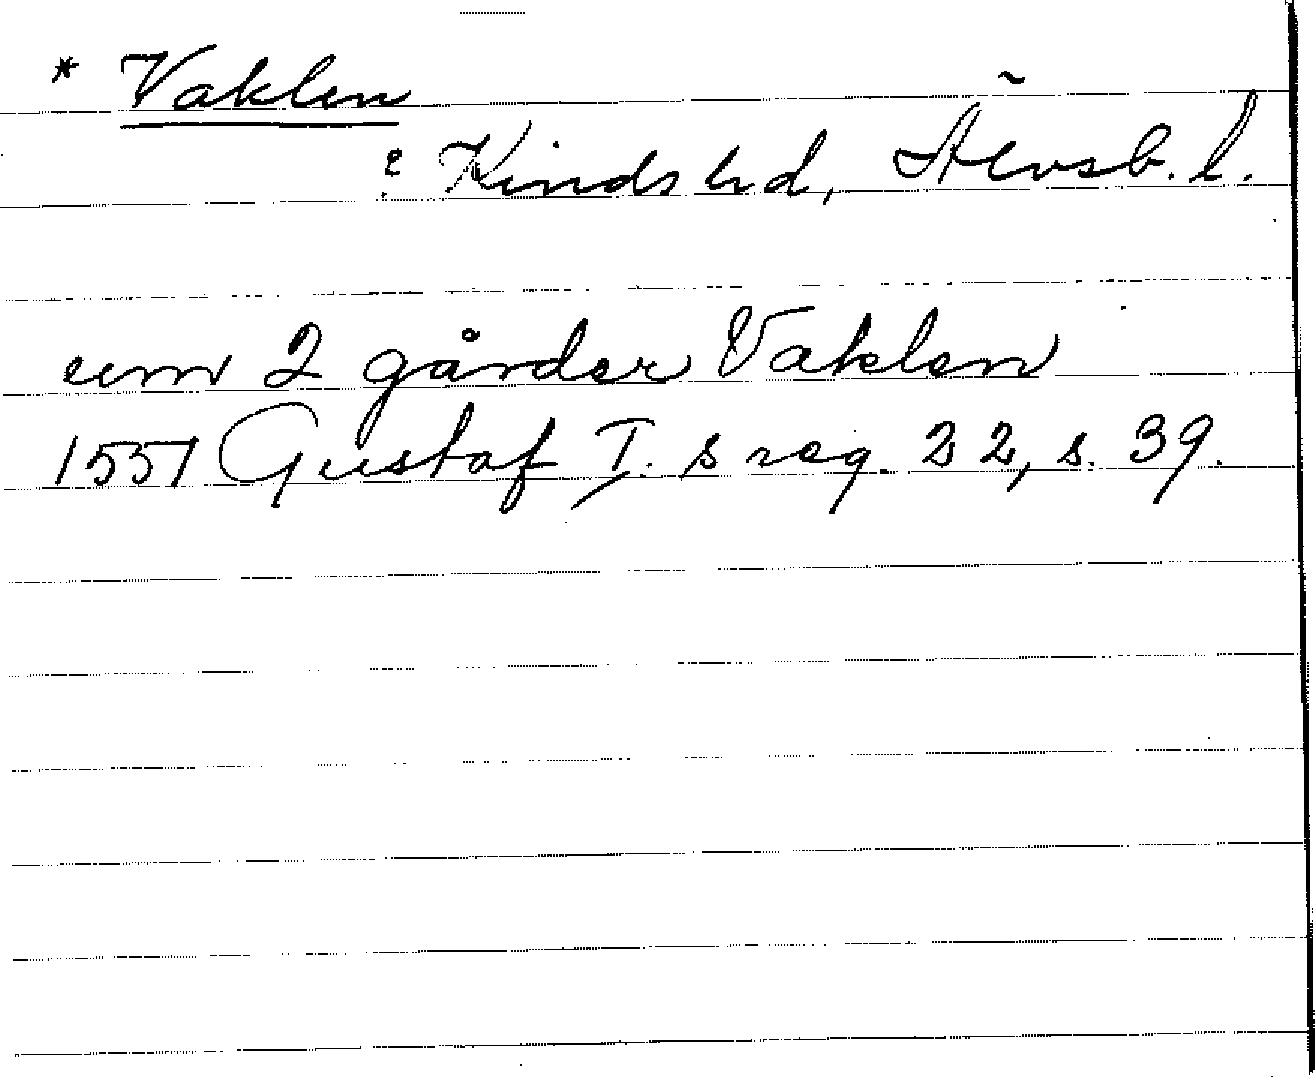 * Vaklen
? Kinds hd, Älvsb. l.
um 2 gårder Vaklen
1551 Gustaf I. s reg. 22, s. 39.